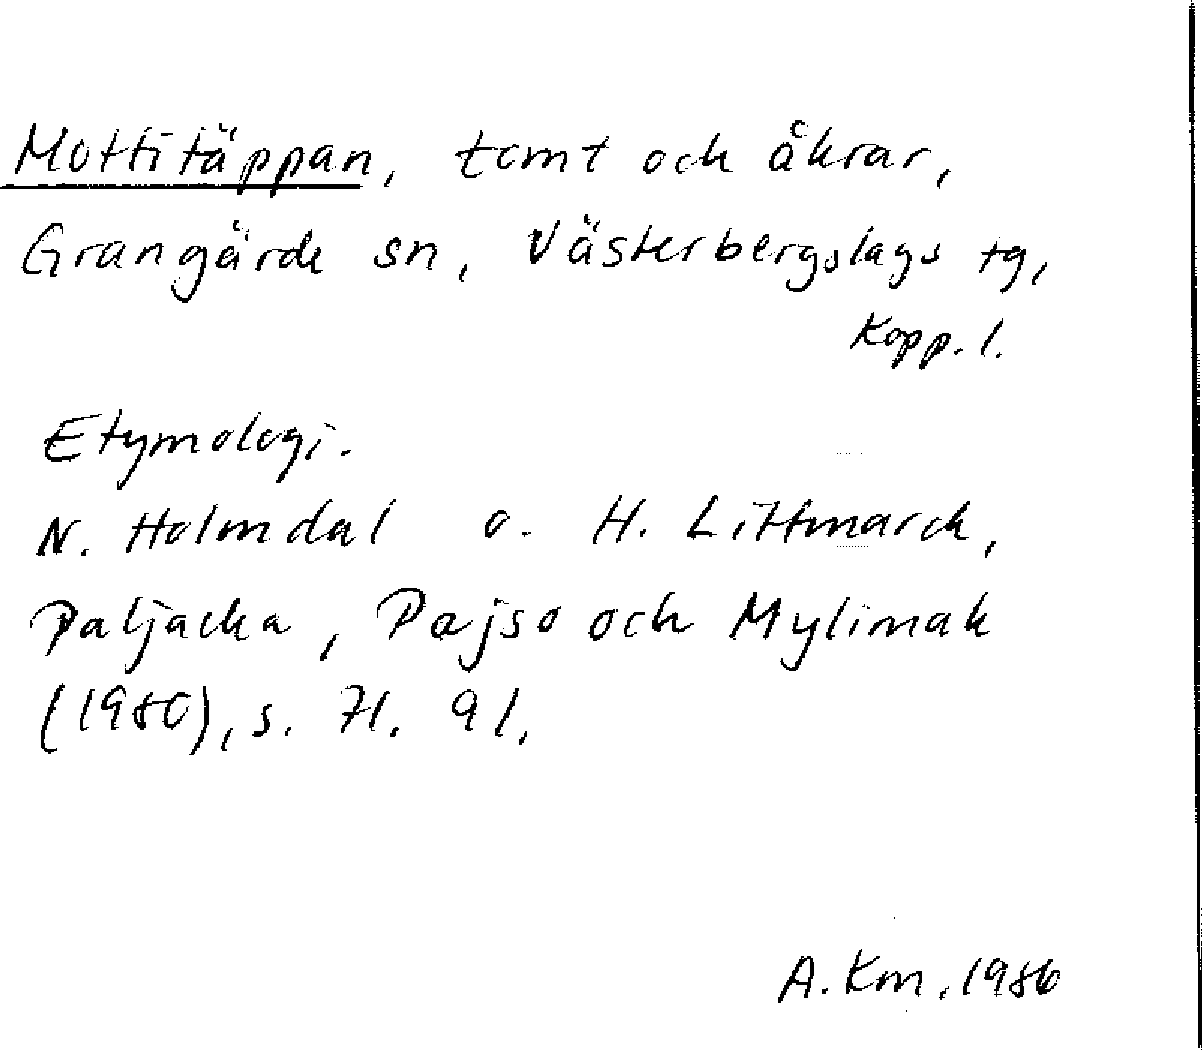 Mottitäppan, tomt och åkrar,
Grangärde sn, Västerbergslags tg,
Kopp. l.
Etymologi.
N. Holmdal o. H. Littmarck,
Paljacka, Pajso och Mylimak
(1980), s. 71. 91.
A. Km, 1986